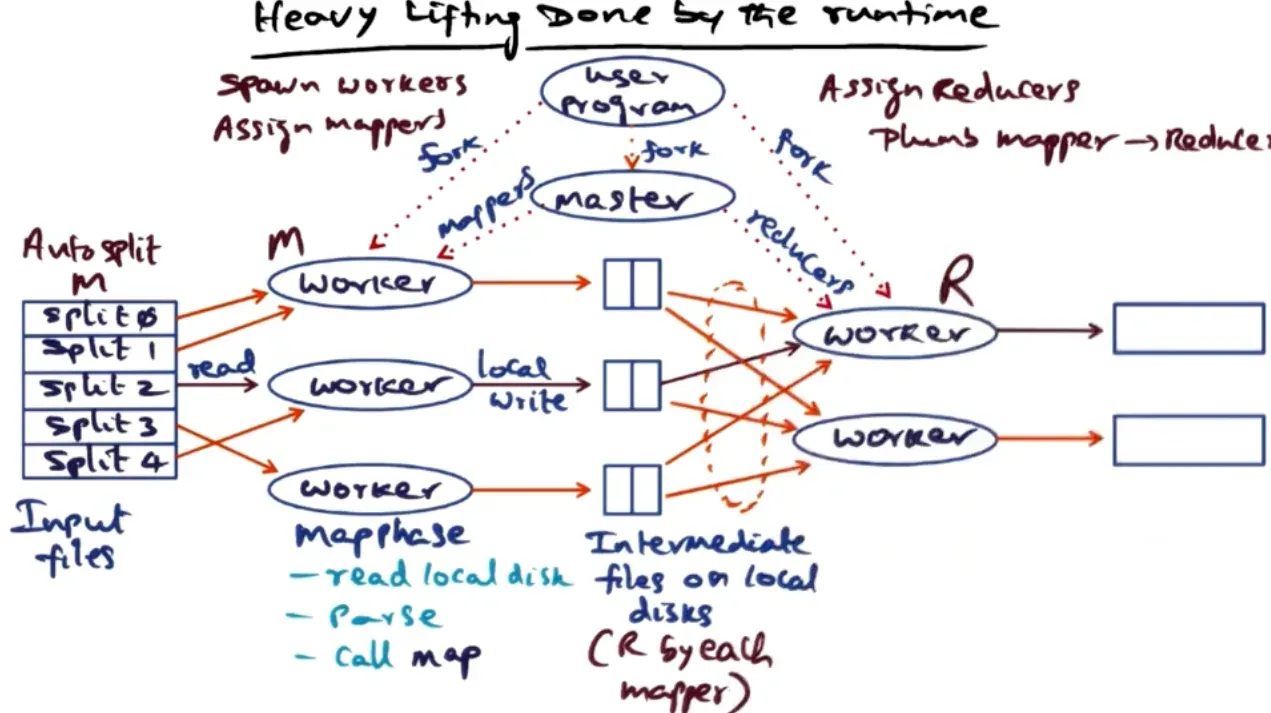 Heavy Lifting Done by the runtime
Spawn workers
Assign mappers
user
program
Assign Reducers
Plumb mapper → Reducer
fork
fork
fork
mappers
master
reducers
Auto split
M
M
R
split 0
split 1
split 2
split 3
split 4
read
worker
worker
worker
local
write
worker
worker
Input
files
map phase
- read local disk
- Parse
- Call map
Intermediate
files on local
disks
(R by each
mapper)